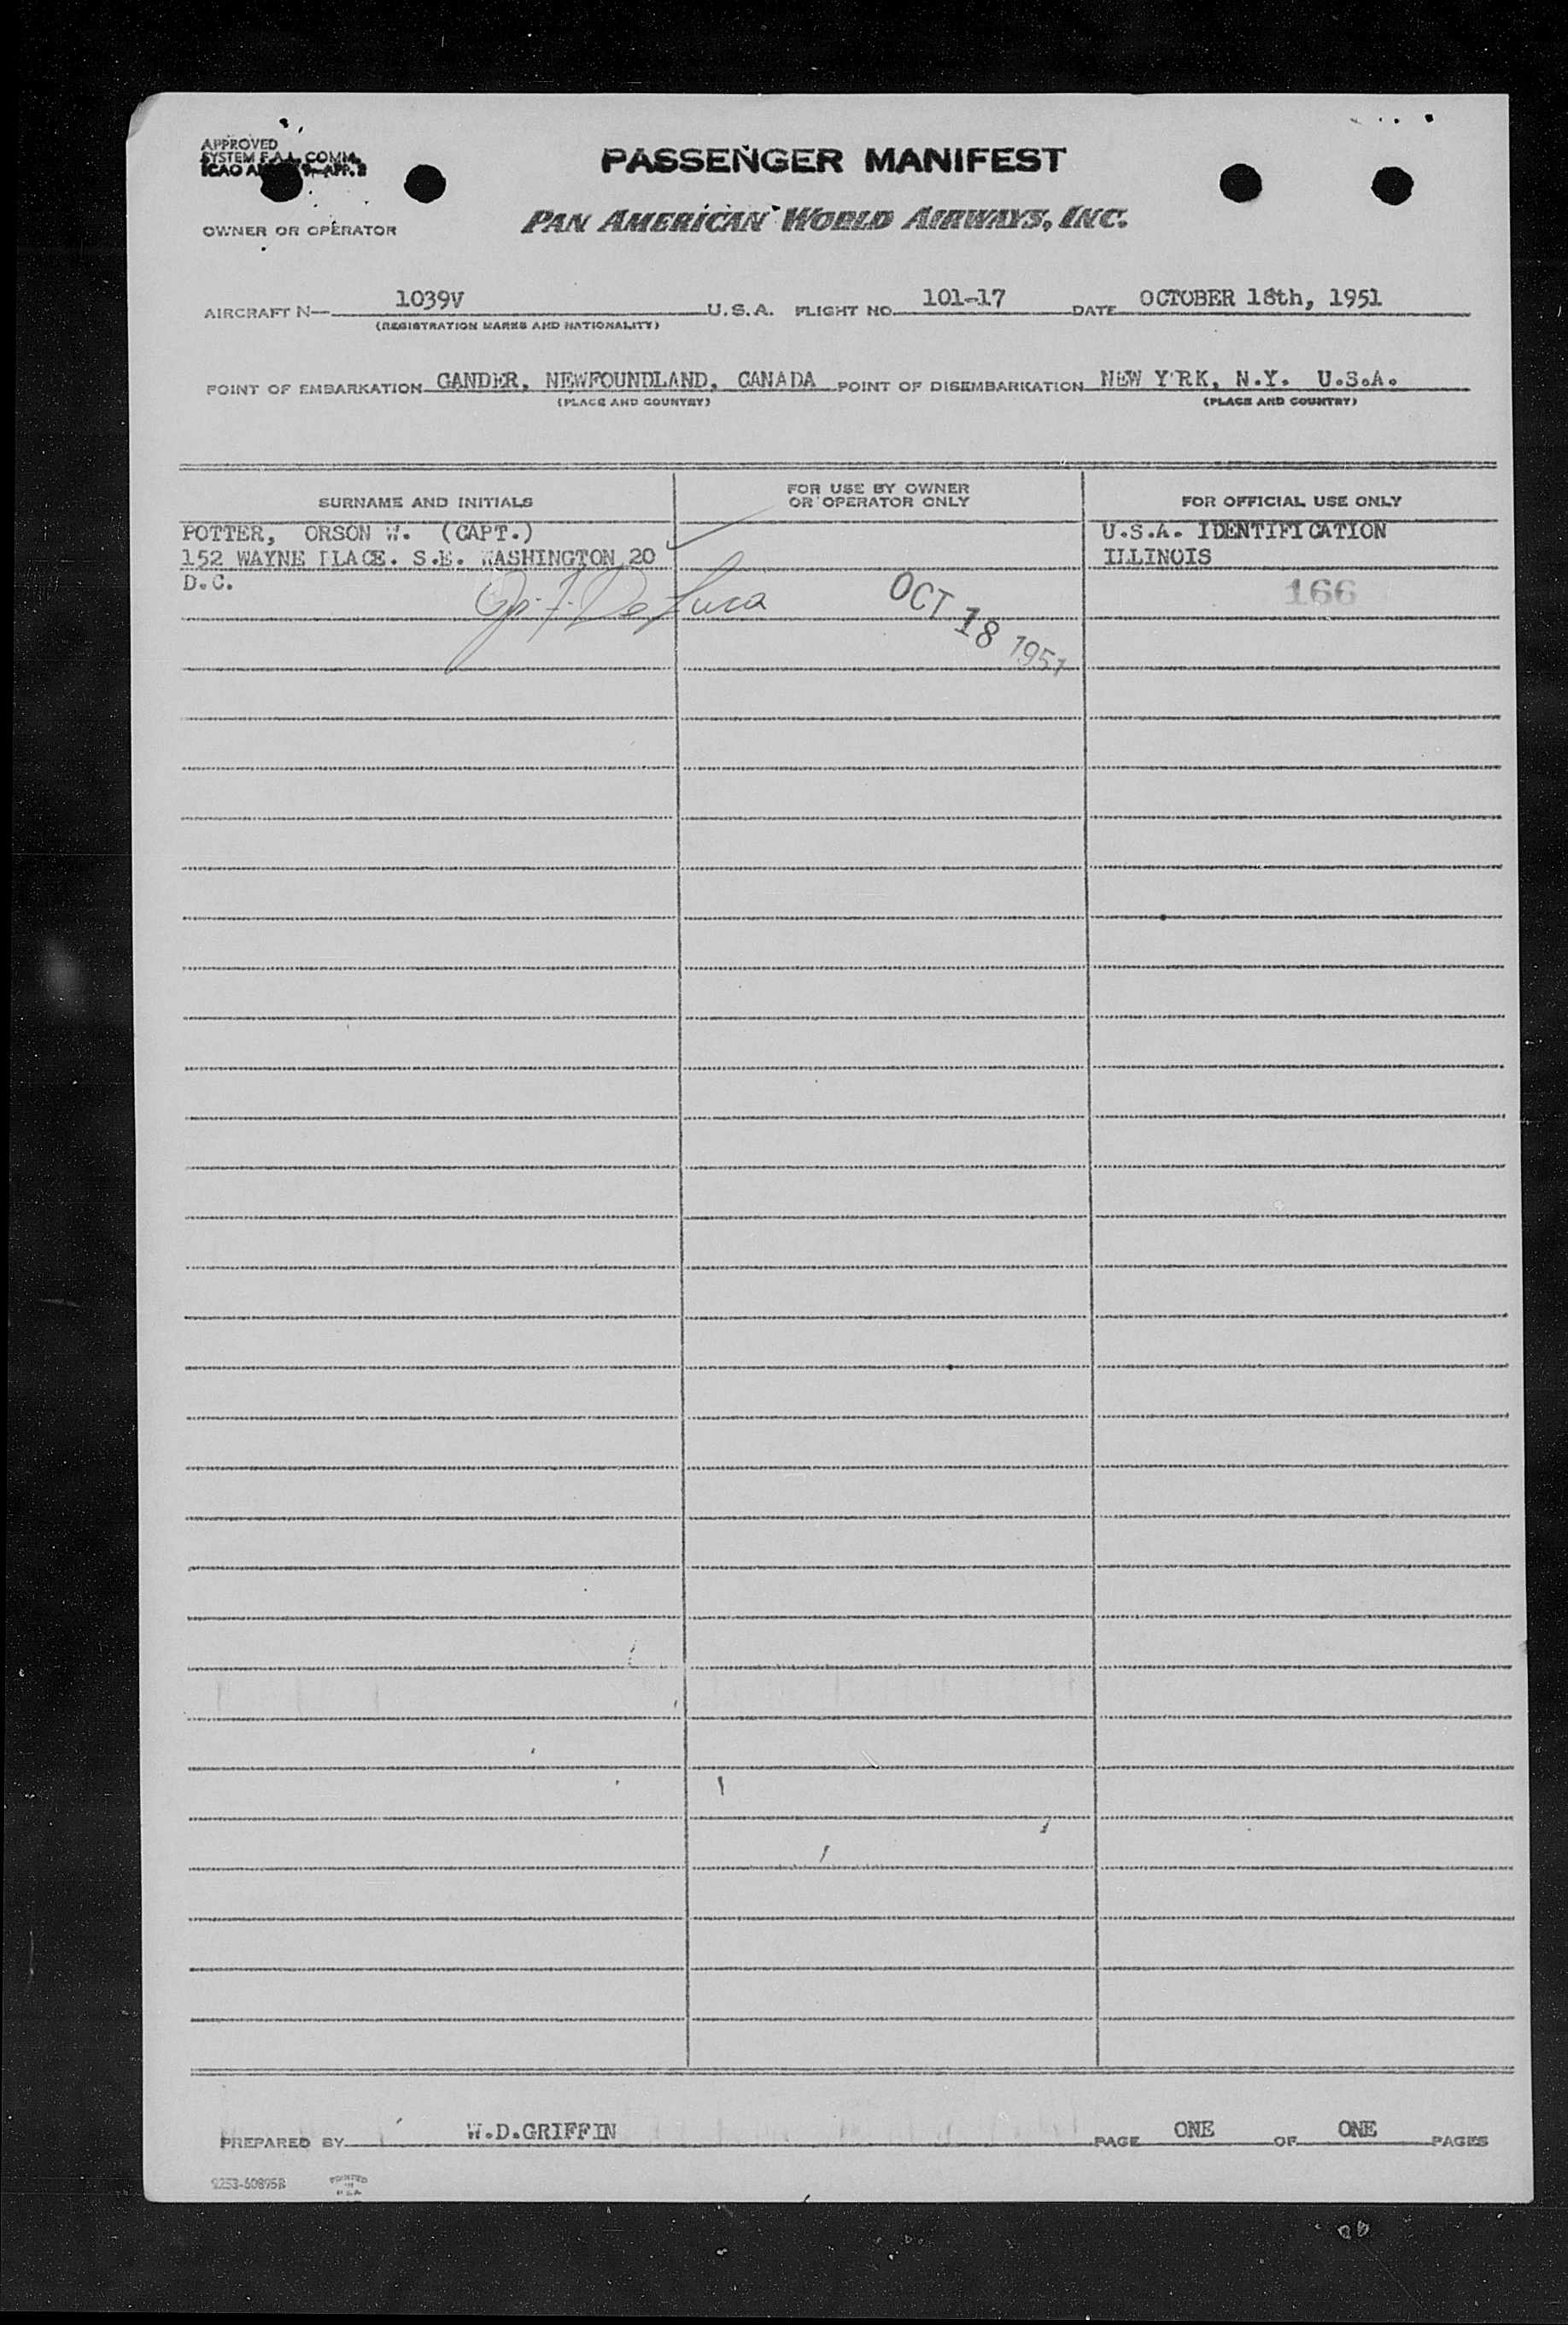 APPROVED
SYSTEM F.A.L. COMM.
ICAO APP. 2
PASSENGER MANIFEST
PAN AMERICAN WORLD AIRWAYS, INC.
OWNER OR OPERATOR
AIRCRAFT N— 1039V U.S.A. FLIGHT NO. 101-17 DATE OCTOBER 18th, 1951
(REGISTRATION MARKS AND NATIONALITY)
POINT OF EMBARKATION GANDER, NEWFOUNDLAND, CANADA POINT OF DISEMBARKATION NEW Y'RK, N.Y. U.S.A.
(PLACE AND COUNTRY) (PLACE AND COUNTRY)
SURNAME AND INITIALS FOR USE BY OWNER OR OPERATOR ONLY FOR OFFICIAL USE ONLY
POTTER, ORSON W. (CAPT.) U.S.A. IDENTIFICATION
152 WAYNE PLACE. S.E. WASHINGTON 20 ILLINOIS
D.C. De Luca OCT 18 1951 166
PREPARED BY W.D.GRIFFIN PAGE ONE OF ONE PAGES
9253-60895R PRINTED IN U.S.A.